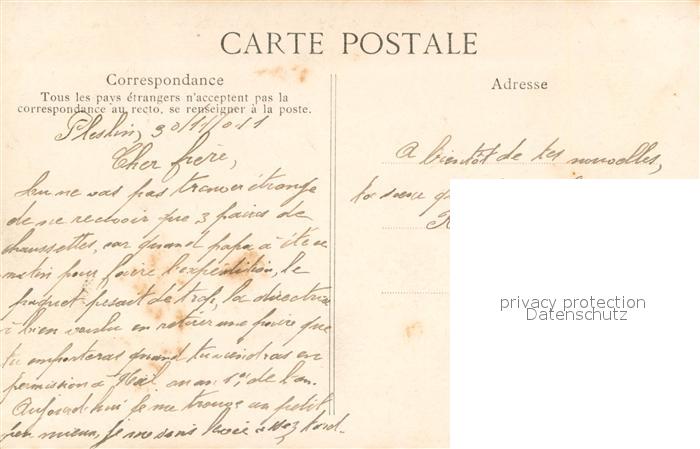 CARTE POSTALE
Correspondance
Tous les pays étrangers n'acceptent pas la
correspondance au recto, se renseigner à la poste.
Adresse
Pleslin, 30/11/011
Cher frère,
tu ne vas pas trouver étrange
de ne recevoir que 3 paires de
chaussettes, car quand papa a été ce
matin pour faire l'expédition, le
paquet pesait de trop, la directrice
a bien voulu en retirer une paire que
tu emporteras quand tu viendras en
permission à Noël ou au 1er de l'an.
Aujourd'hui je me trouve un petit
peu mieux, je me suis levée assez tard.
A bientôt de tes nouvelles,
ta soeur
privacy protection
Datenschutz